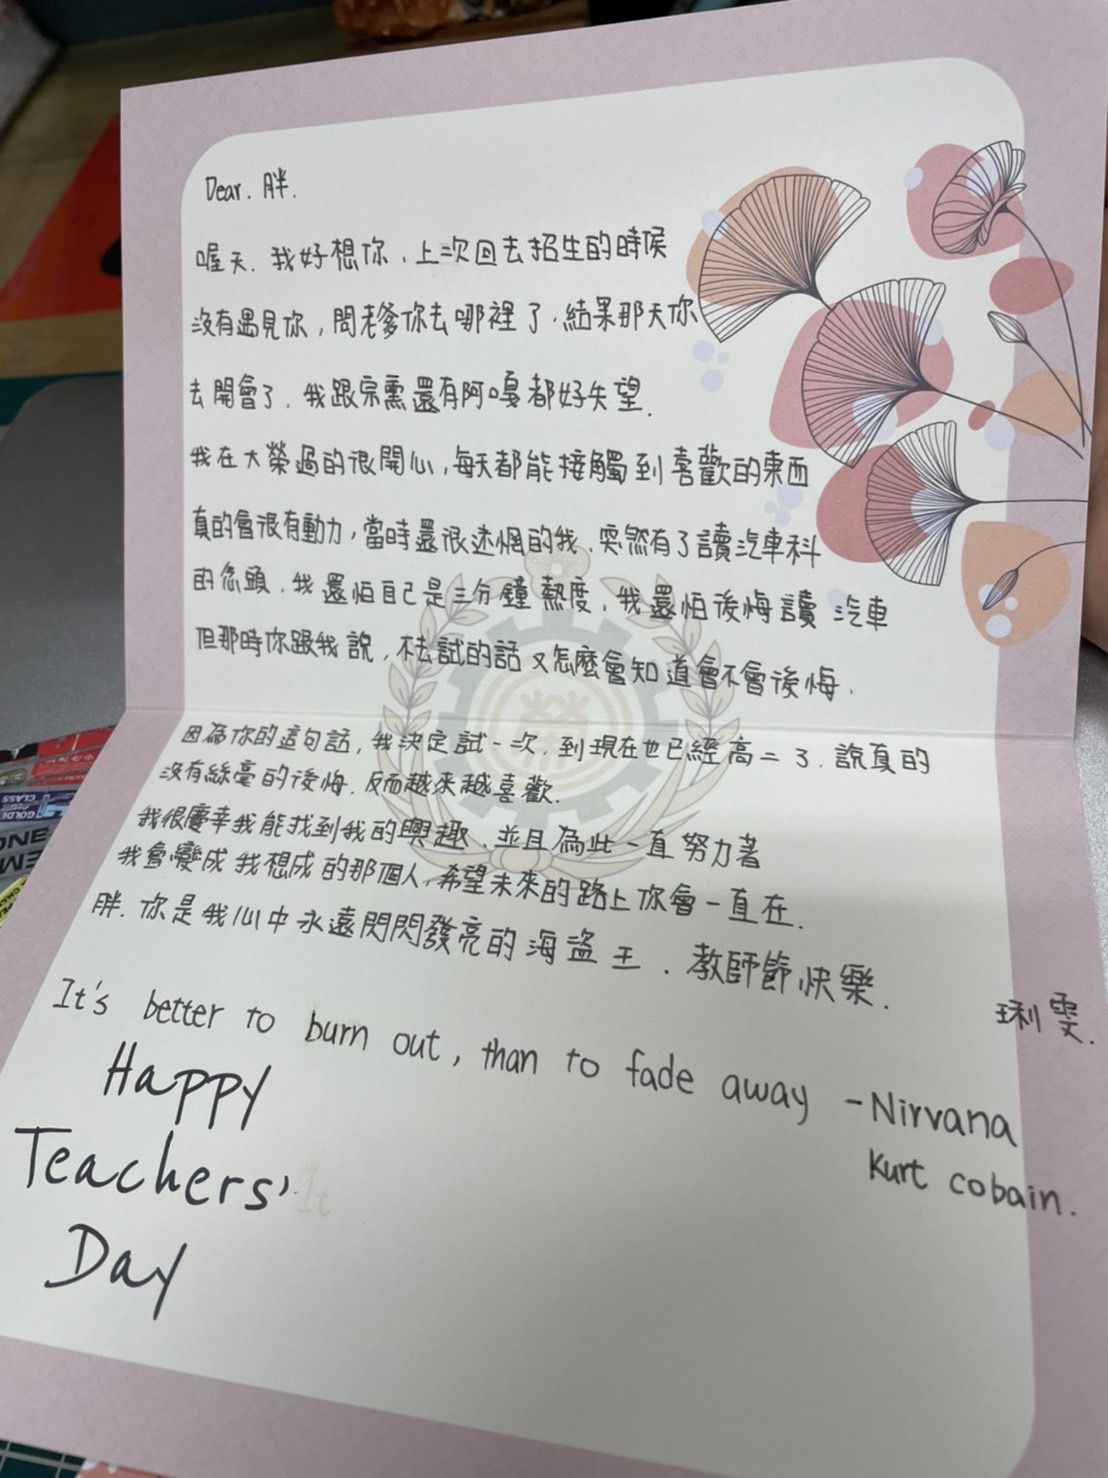 Dear. 胖.
喔天. 我好想你、上次回去招生的時候
沒有遇見你，問老爹你去哪裡了.結果那天你
去開會了. 我跟宗熏還有阿嘎都好失望.
我在大榮過的很開心,每天都能接觸到喜歡的東西
真的會很有動力,當時還很迷惘的我、突然有了讀汽車科
的念頭、我還怕自己是三分鐘熱度、我還怕後悔讀汽車
但那時你跟我說,不去試的話又怎麼會知道會不會後悔.
因為你的這句話,我決定試一次,到現在也已經高二了.說真的
沒有絲毫的後悔.反而越來越喜歡.
我很慶幸我能找到我的興趣、並且為此一直努力著
我會變成我想成的那個人,希望未來的路上你會一直在.
胖.你是我心中永遠閃閃發亮的海盜王.教師節快樂.
琍雯.
It's better to burn out, than to fade away -Nirvana
Kurt cobain.
Happy
Teachers'
Day
It
榮